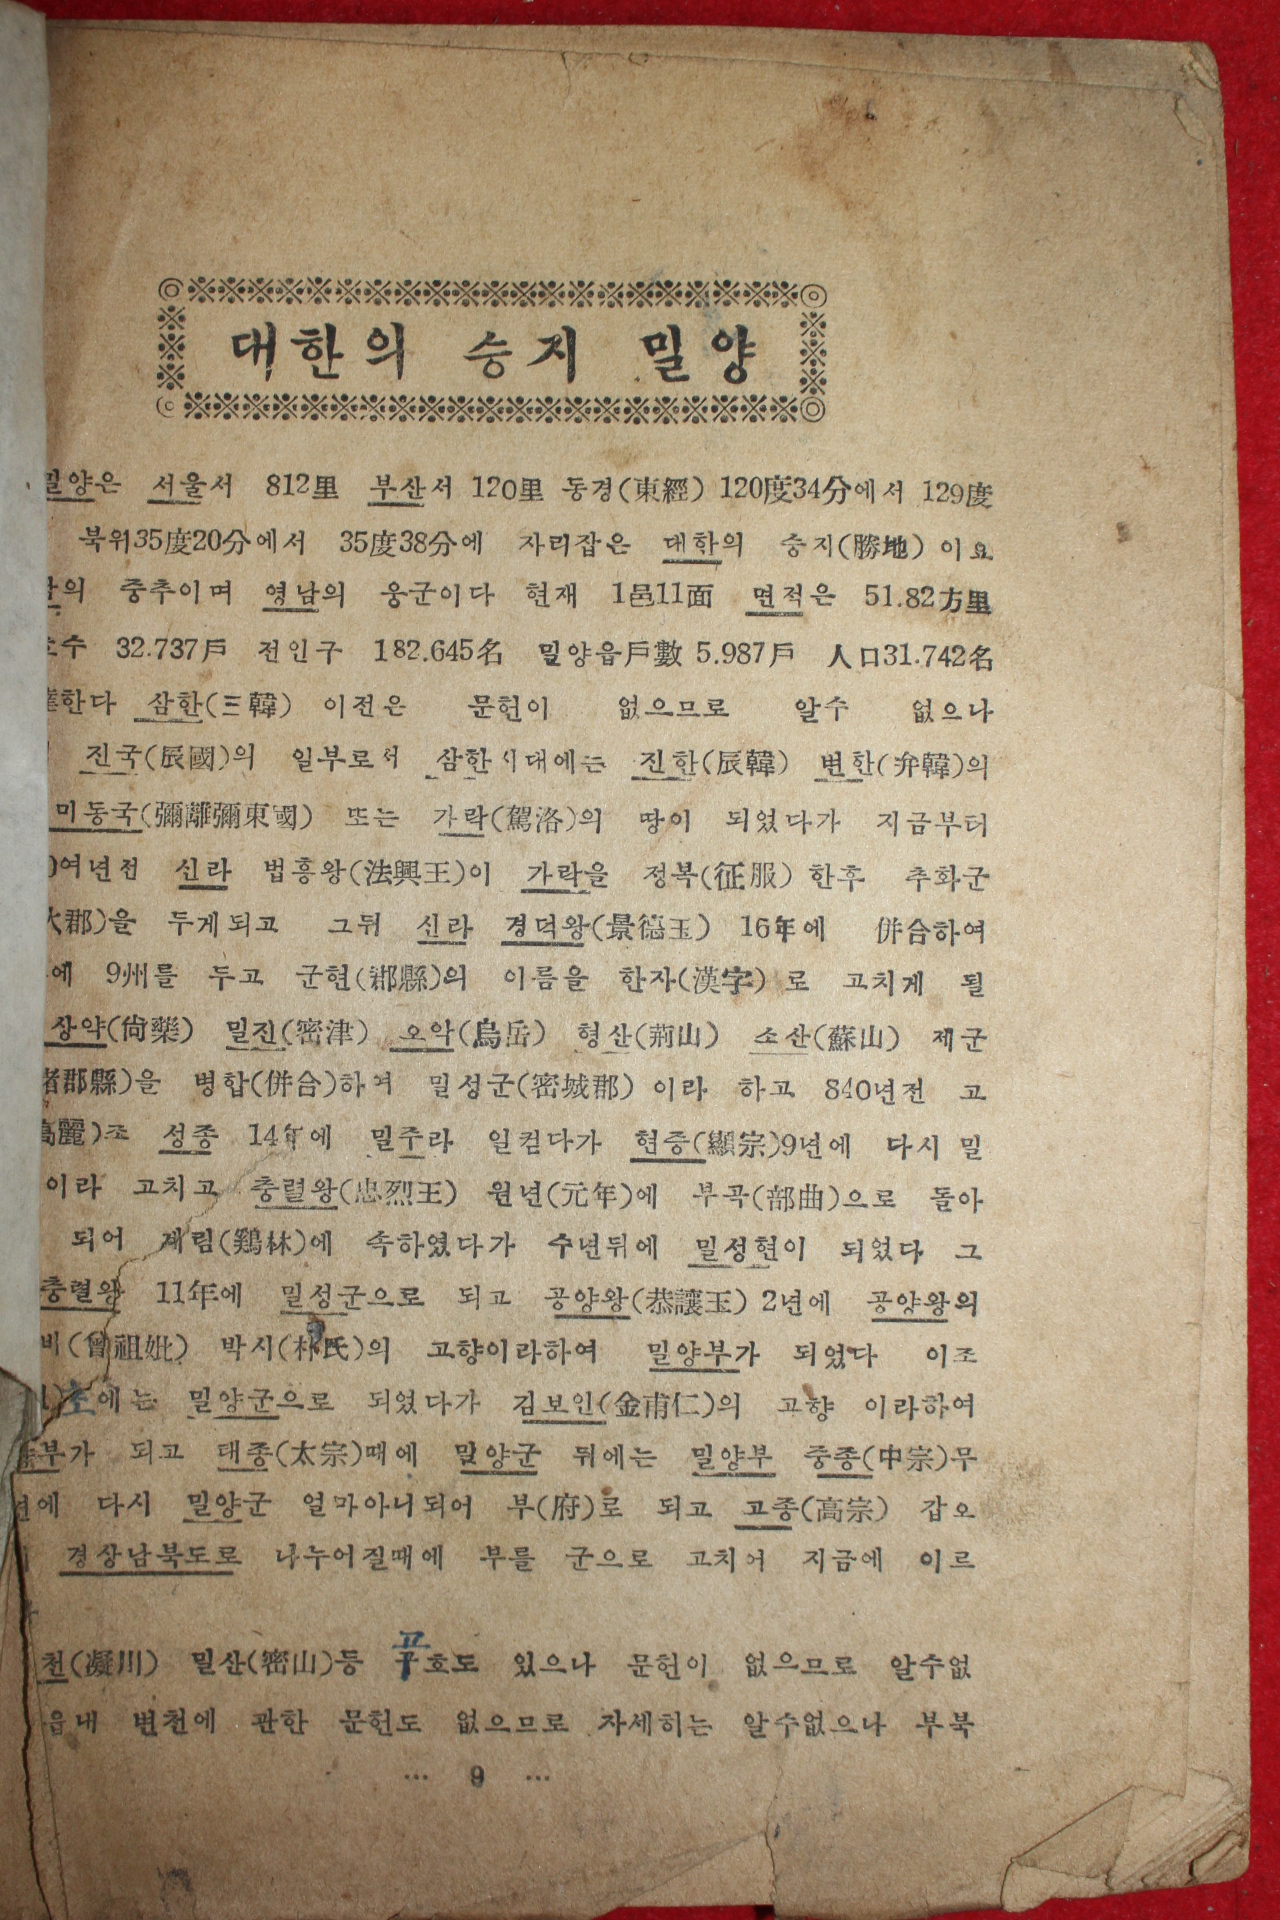 대한의 승지 밀양
밀양은 서울서 812里 부산서 120里 동경(東經) 120度34分에서 129度
북위35度20分에서 35度38分에 자리잡은 대한의 승지(勝地) 이요
의 중추이며 영남의 웅군이다 현재 1邑11面 면적은 51.82方里
수 32.737戶 전인구 182.645名 밀양읍戶數 5.987戶 人口31.742名
한다 삼한(三韓) 이전은 문헌이 없으므로 알수 없으나
진국(辰國)의 일부로서 삼한시대에는 진한(辰韓) 변한(弁韓)의
미동국(彌離彌東國) 또는 가락(駕洛)의 땅이 되었다가 지금부터
0여년전 신라 법흥왕(法興王)이 가락을 정복(征服) 한후 추화군
郡)을 두게되고 그뒤 신라 경덕왕(景德王) 16年에 併合하여
에 9州를 두고 군현(郡縣)의 이름을 한자(漢字) 로 고치게 될
상약(尙藥) 밀진(密津) 오악(烏岳) 형산(荊山) 소산(蘇山) 제군
諸郡縣)을 병합(併合)하여 밀성군(密城郡) 이라 하고 840년전 고
高麗)조 성종 14年에 밀주라 일컫다가 현종(顯宗)9년에 다시 밀
이라 고치고 충렬왕(忠烈王) 원년(元年)에 부곡(部曲)으로 돌아
되어 계림(鷄林)에 속하였다가 수년뒤에 밀성현이 되었다 그
충렬왕 11年에 밀성군으로 되고 공양왕(恭讓王) 2년에 공양왕의
비(曾祖妣) 박시(朴氏)의 고향이라하여 밀양부가 되었다 이조
초에는 밀양군으로 되었다가 김보인(金甫仁)의 고향 이라하여
부가 되고 태종(太宗)때에 밀양군 뒤에는 밀양부 중종(中宗)무
년에 다시 밀양군 얼마아니되어 부(府)로 되고 고종(高宗) 갑오
경상남북도로 나누어질때에 부를 군으로 고치어 지금에 이르
천(凝川) 밀산(密山)등 구호도 있으나 문헌이 없으므로 알수없
읍내 변천에 관한 문헌도 없으므로 자세히는 알수없으나 부북
… 9 …